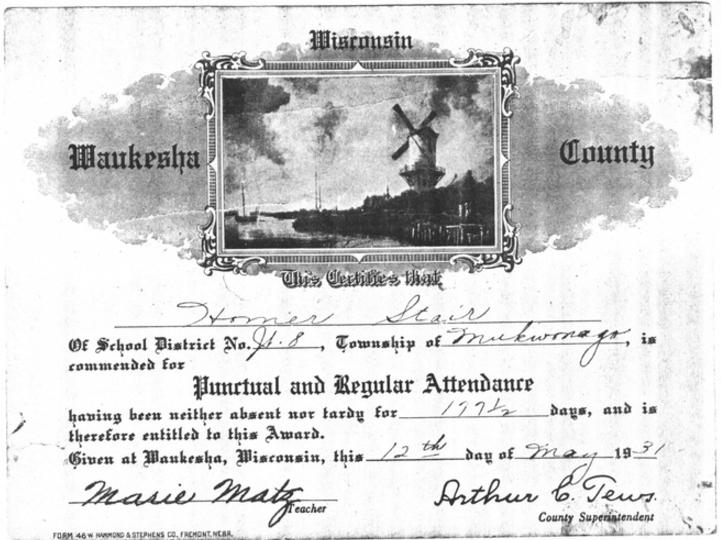 Wisconsin
Waukesha County
This Certifies that
Homer Stair
Of School District No. Jt. 8, Township of Mukwonago, is
commended for
Punctual and Regular Attendance
having been neither absent nor tardy for 177½ days, and is
therefore entitled to this Award.
Given at Waukesha, Wisconsin, this 12th day of May 1931
Marie Matz Arthur C. Tews.
Teacher
County Superintendent
FORM 46W HAMMOND & STEPHENS CO., FREMONT, NEBR.